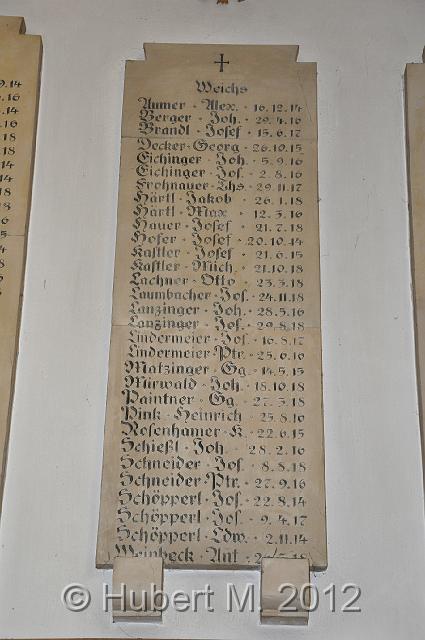 Weichs
Aumer · Alex. · 16.12.14
Berger · Joh. · 29.4.16
Brandl · Josef · 15.6.17
Decker · Georg · 26.10.15
Eichinger · Joh. · 5.9.16
Eichinger · Jos. · 2.8.16
Frohnauer · Ths · 29.11.17
Härtl · Jakob · 26.1.18
Härtl · Max · 12.3.16
Hauer · Josef · 21.7.18
Hofer · Josef · 20.10.14
Kastler · Josef · 21.6.15
Kastler · Mich. · 21.10.18
Lachner · Otto · 23.3.18
Laumbacher · Jos. · 24.11.18
Lanzinger · Joh. · 28.5.16
Lanzinger · Jos. · 29.8.18
Lindermeier · Jos. · 16.8.17
Lindermeier · Ptr. · 25.6.16
Matzinger · Gg. · 14.5.15
Mirwald · Joh. · 18.10.18
Paintner · Gg. · 27.3.18
Pink · Heinrich · 25.8.16
Rosenhamer · K. · 22.6.15
Schießl · Joh. · 28.2.16
Schneider · Jos. · 8.8.18
Schneider · Ptr. · 27.9.16
Schöpperl · Jos. · 22.8.14
Schöpperl · Jos. · 9.4.17
Schöpperl · Ldw. · 2.11.14
Weinbeck · Ant
© Hubert M. 2012